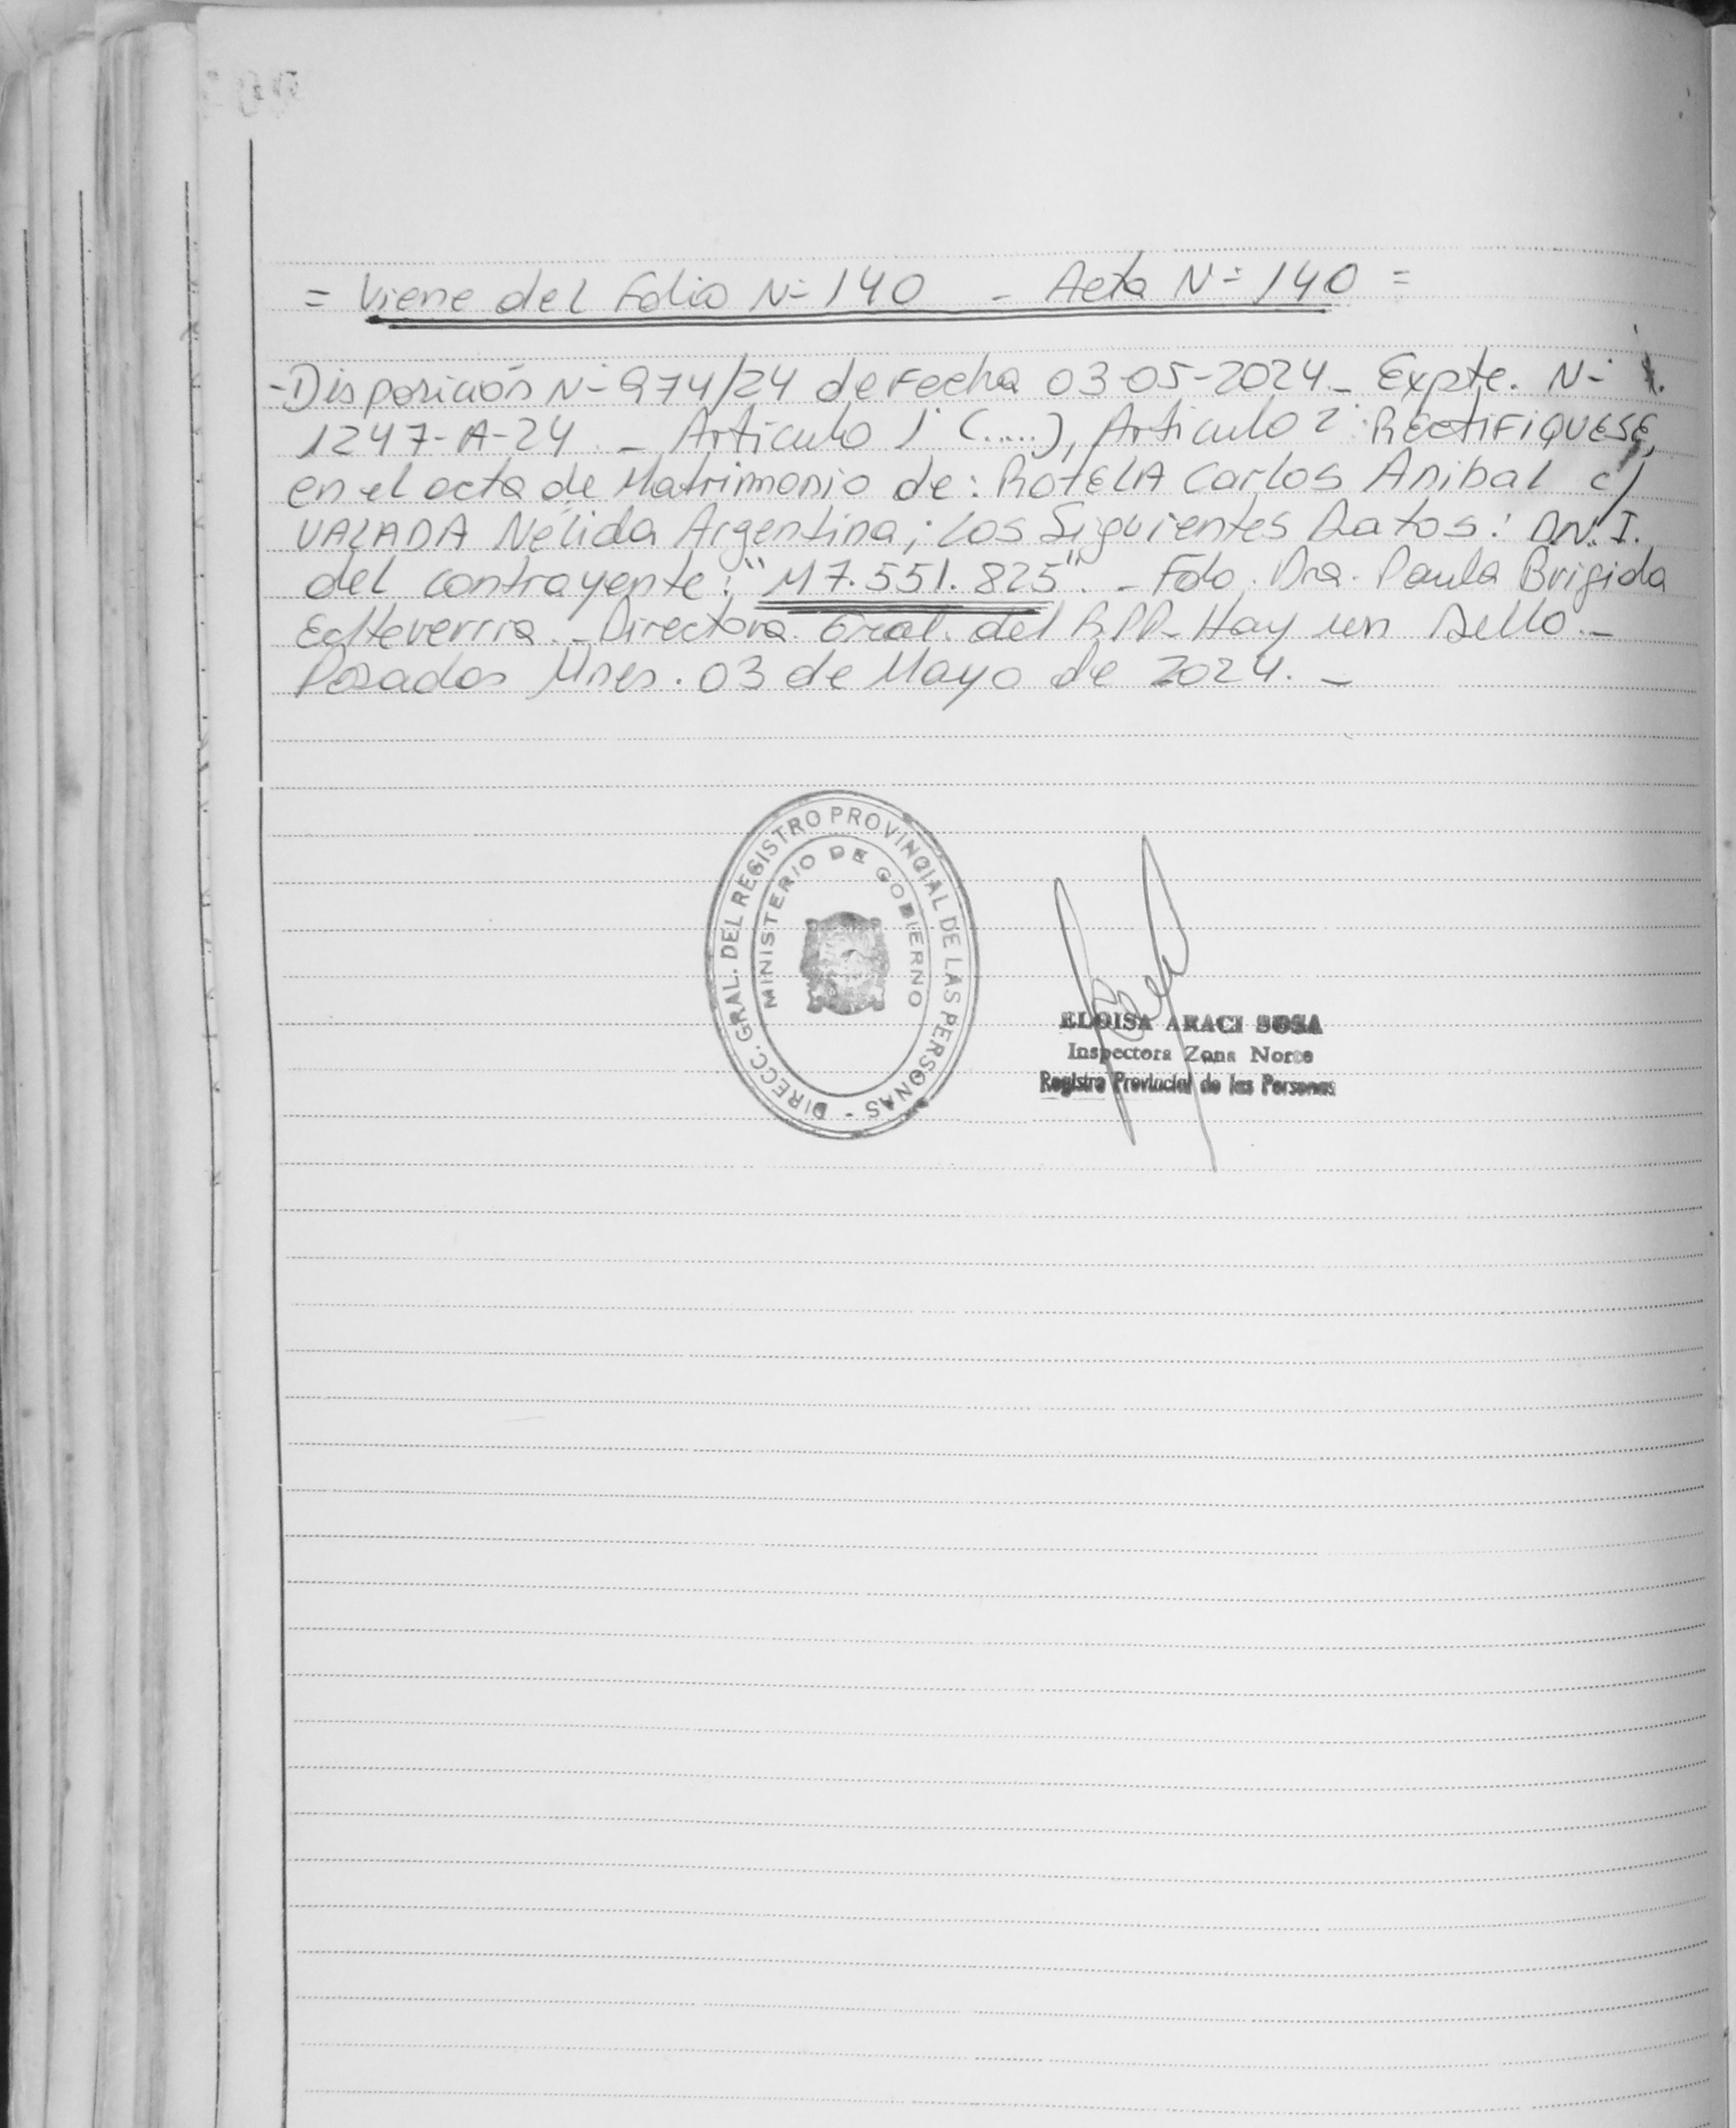 = Viene del Folio Nº 140 - Acta Nº 140 =
-Disposición Nº 974/24 de Fecha 03-05-2024.- Expte. Nº
1247-A-24.- Artículo 1º (.....), Artículo 2º: RECTIFIQUESE,
en el acta de Matrimonio de: ROTELA Carlos Anibal c/
VALADA Nélida Argentina; los Siguientes Datos: D.N.I.
del contrayente: "M7.551.825".- Fdo. Dra. Paula Brigida
Echeverria.- Directora Gral. del RPP- Hay un Sello.-
Posadas Mnes. 03 de Mayo de 2024.-
DIRECC. GRAL. DEL REGISTRO PROVINCIAL DE LAS PERSONAS -
MINISTERIO DE GOBIERNO
ELOISA ARACI SOSA
Inspectora Zona Norte
Registro Provincial de las Personas